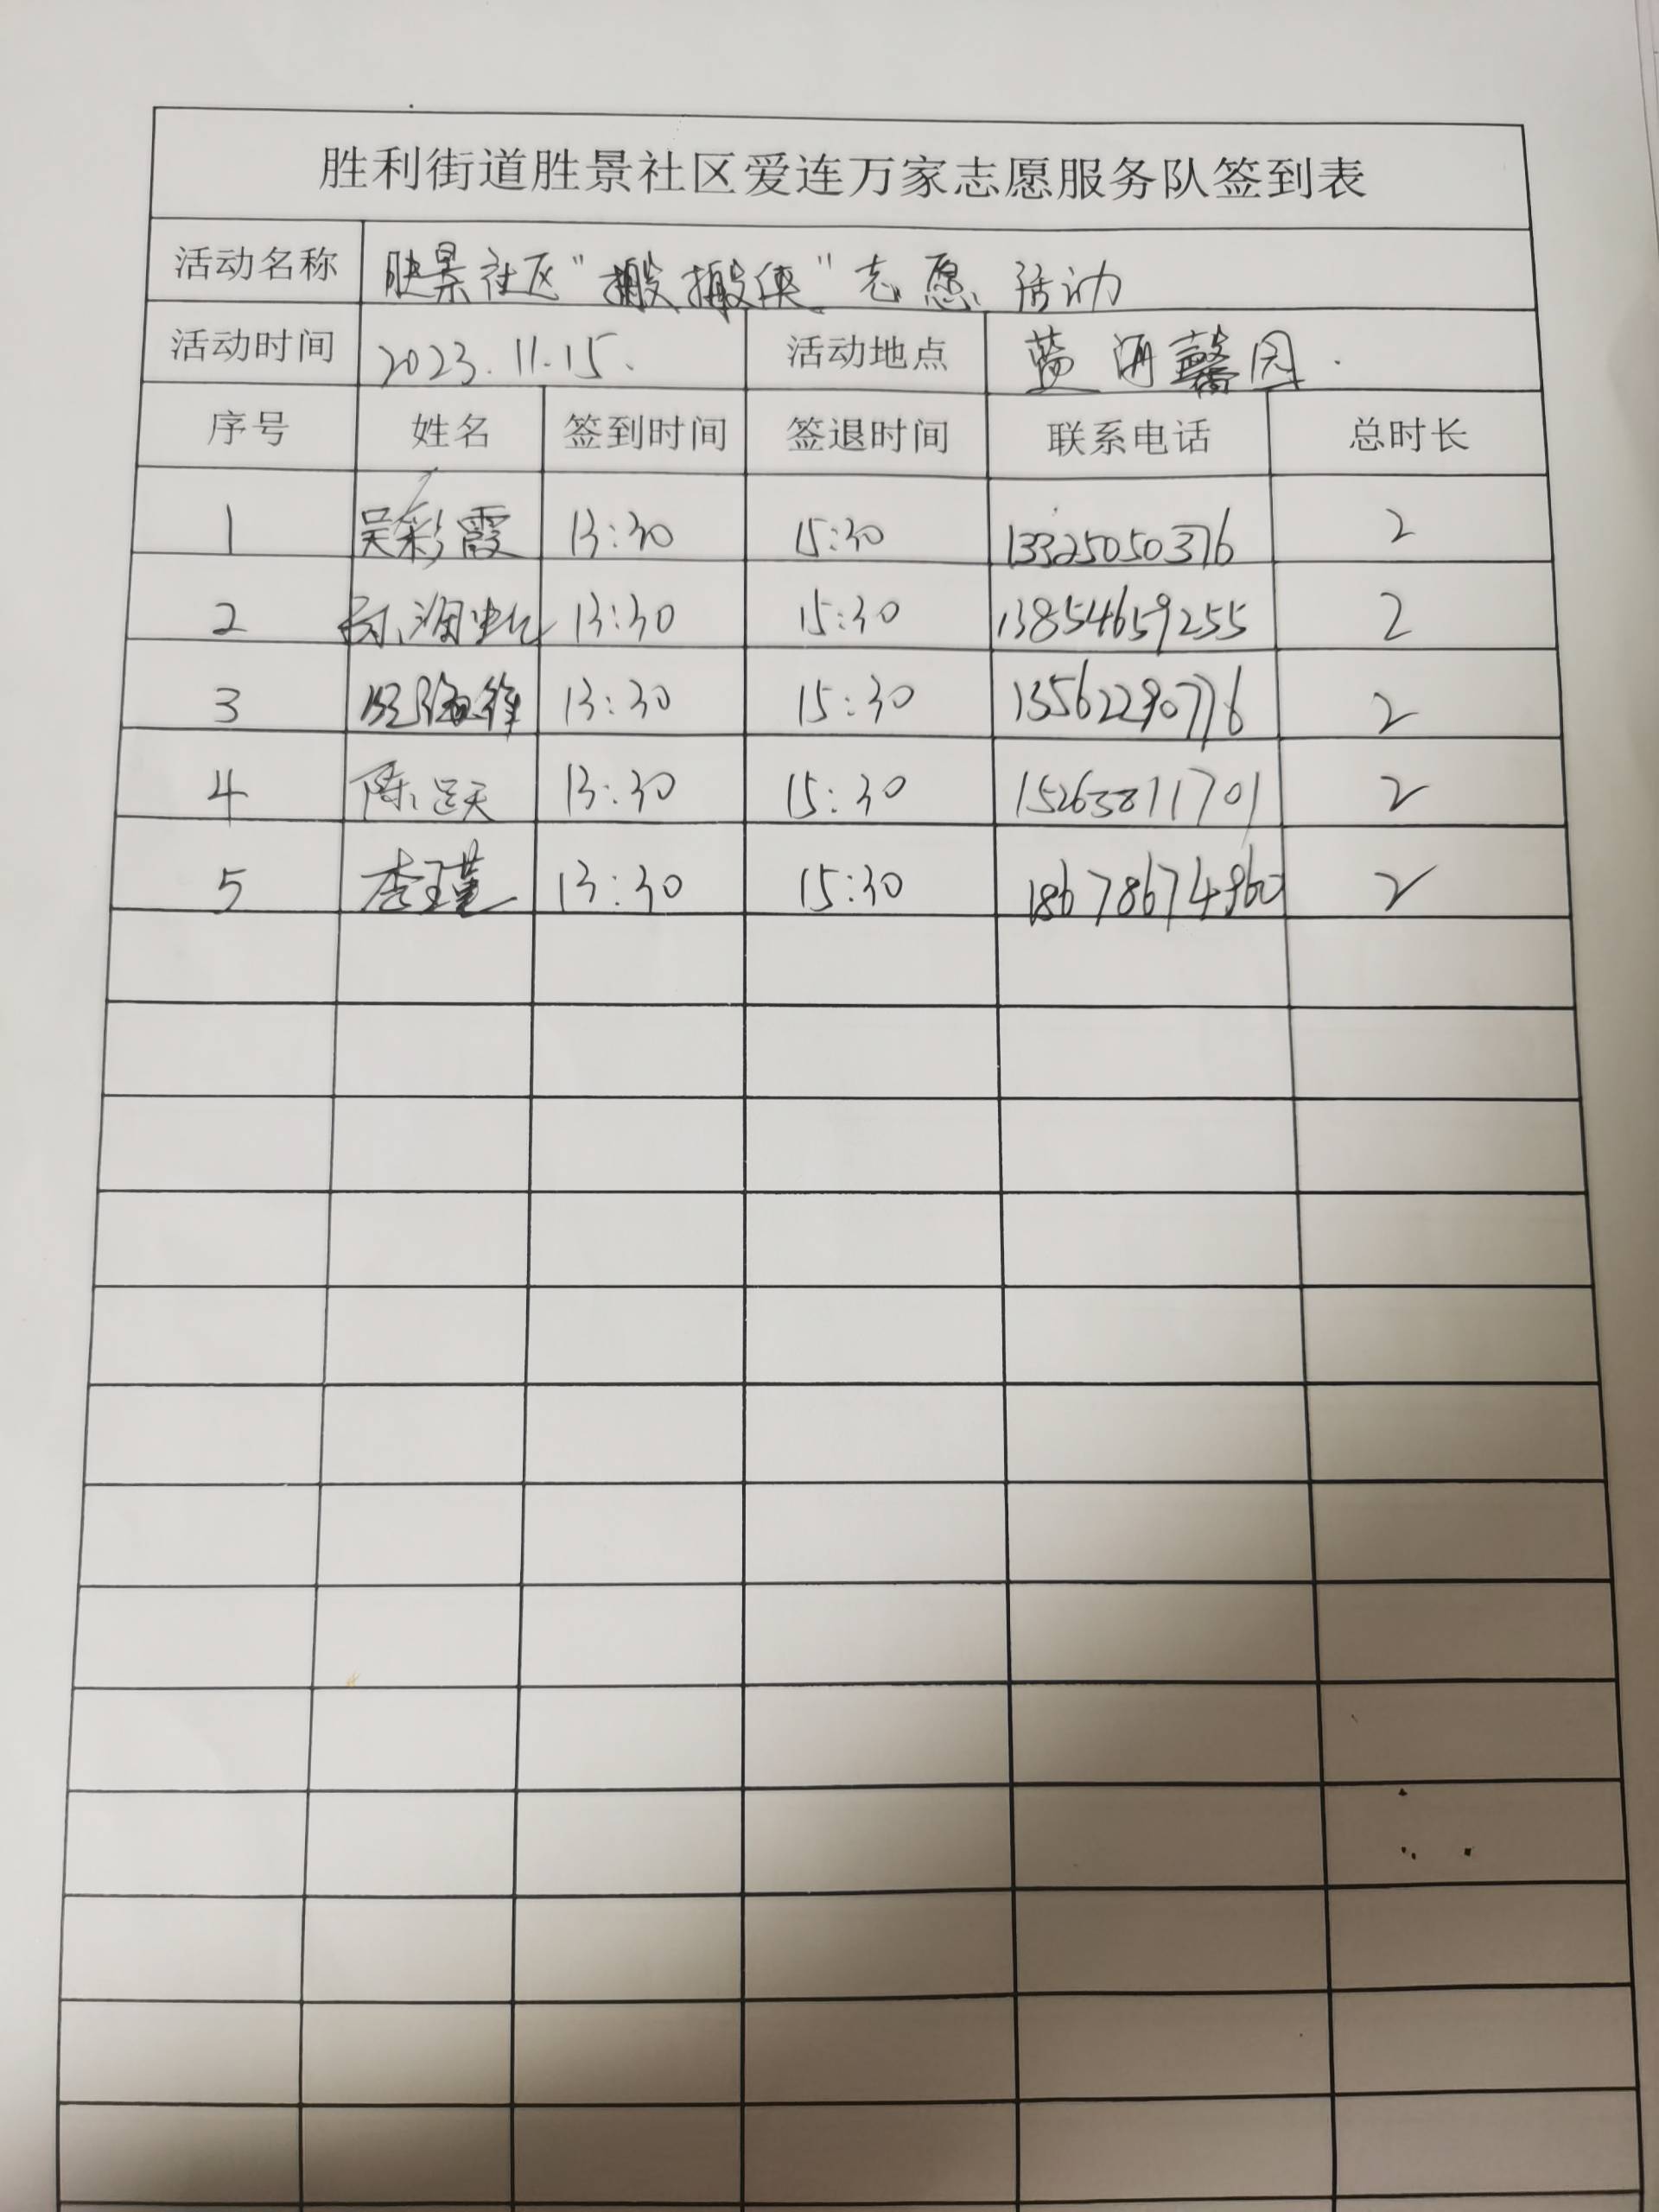 胜利街道胜景社区爱连万家志愿服务队签到表
活动名称 胜景社区"搬搬侠"志愿活动
活动时间 2023.11.15. 活动地点 蓝海馨园.
序号 姓名 签到时间 签退时间 联系电话 总时长
1 吴彩霞 13:30 15:30 13325050376 2
2 13:30 15:30 13854659255 2
3 13:30 15:30 13562290776 2
4 陈跃 13:30 15:30 15263811701 2
5 李瑾 13:30 15:30 18678674960 2